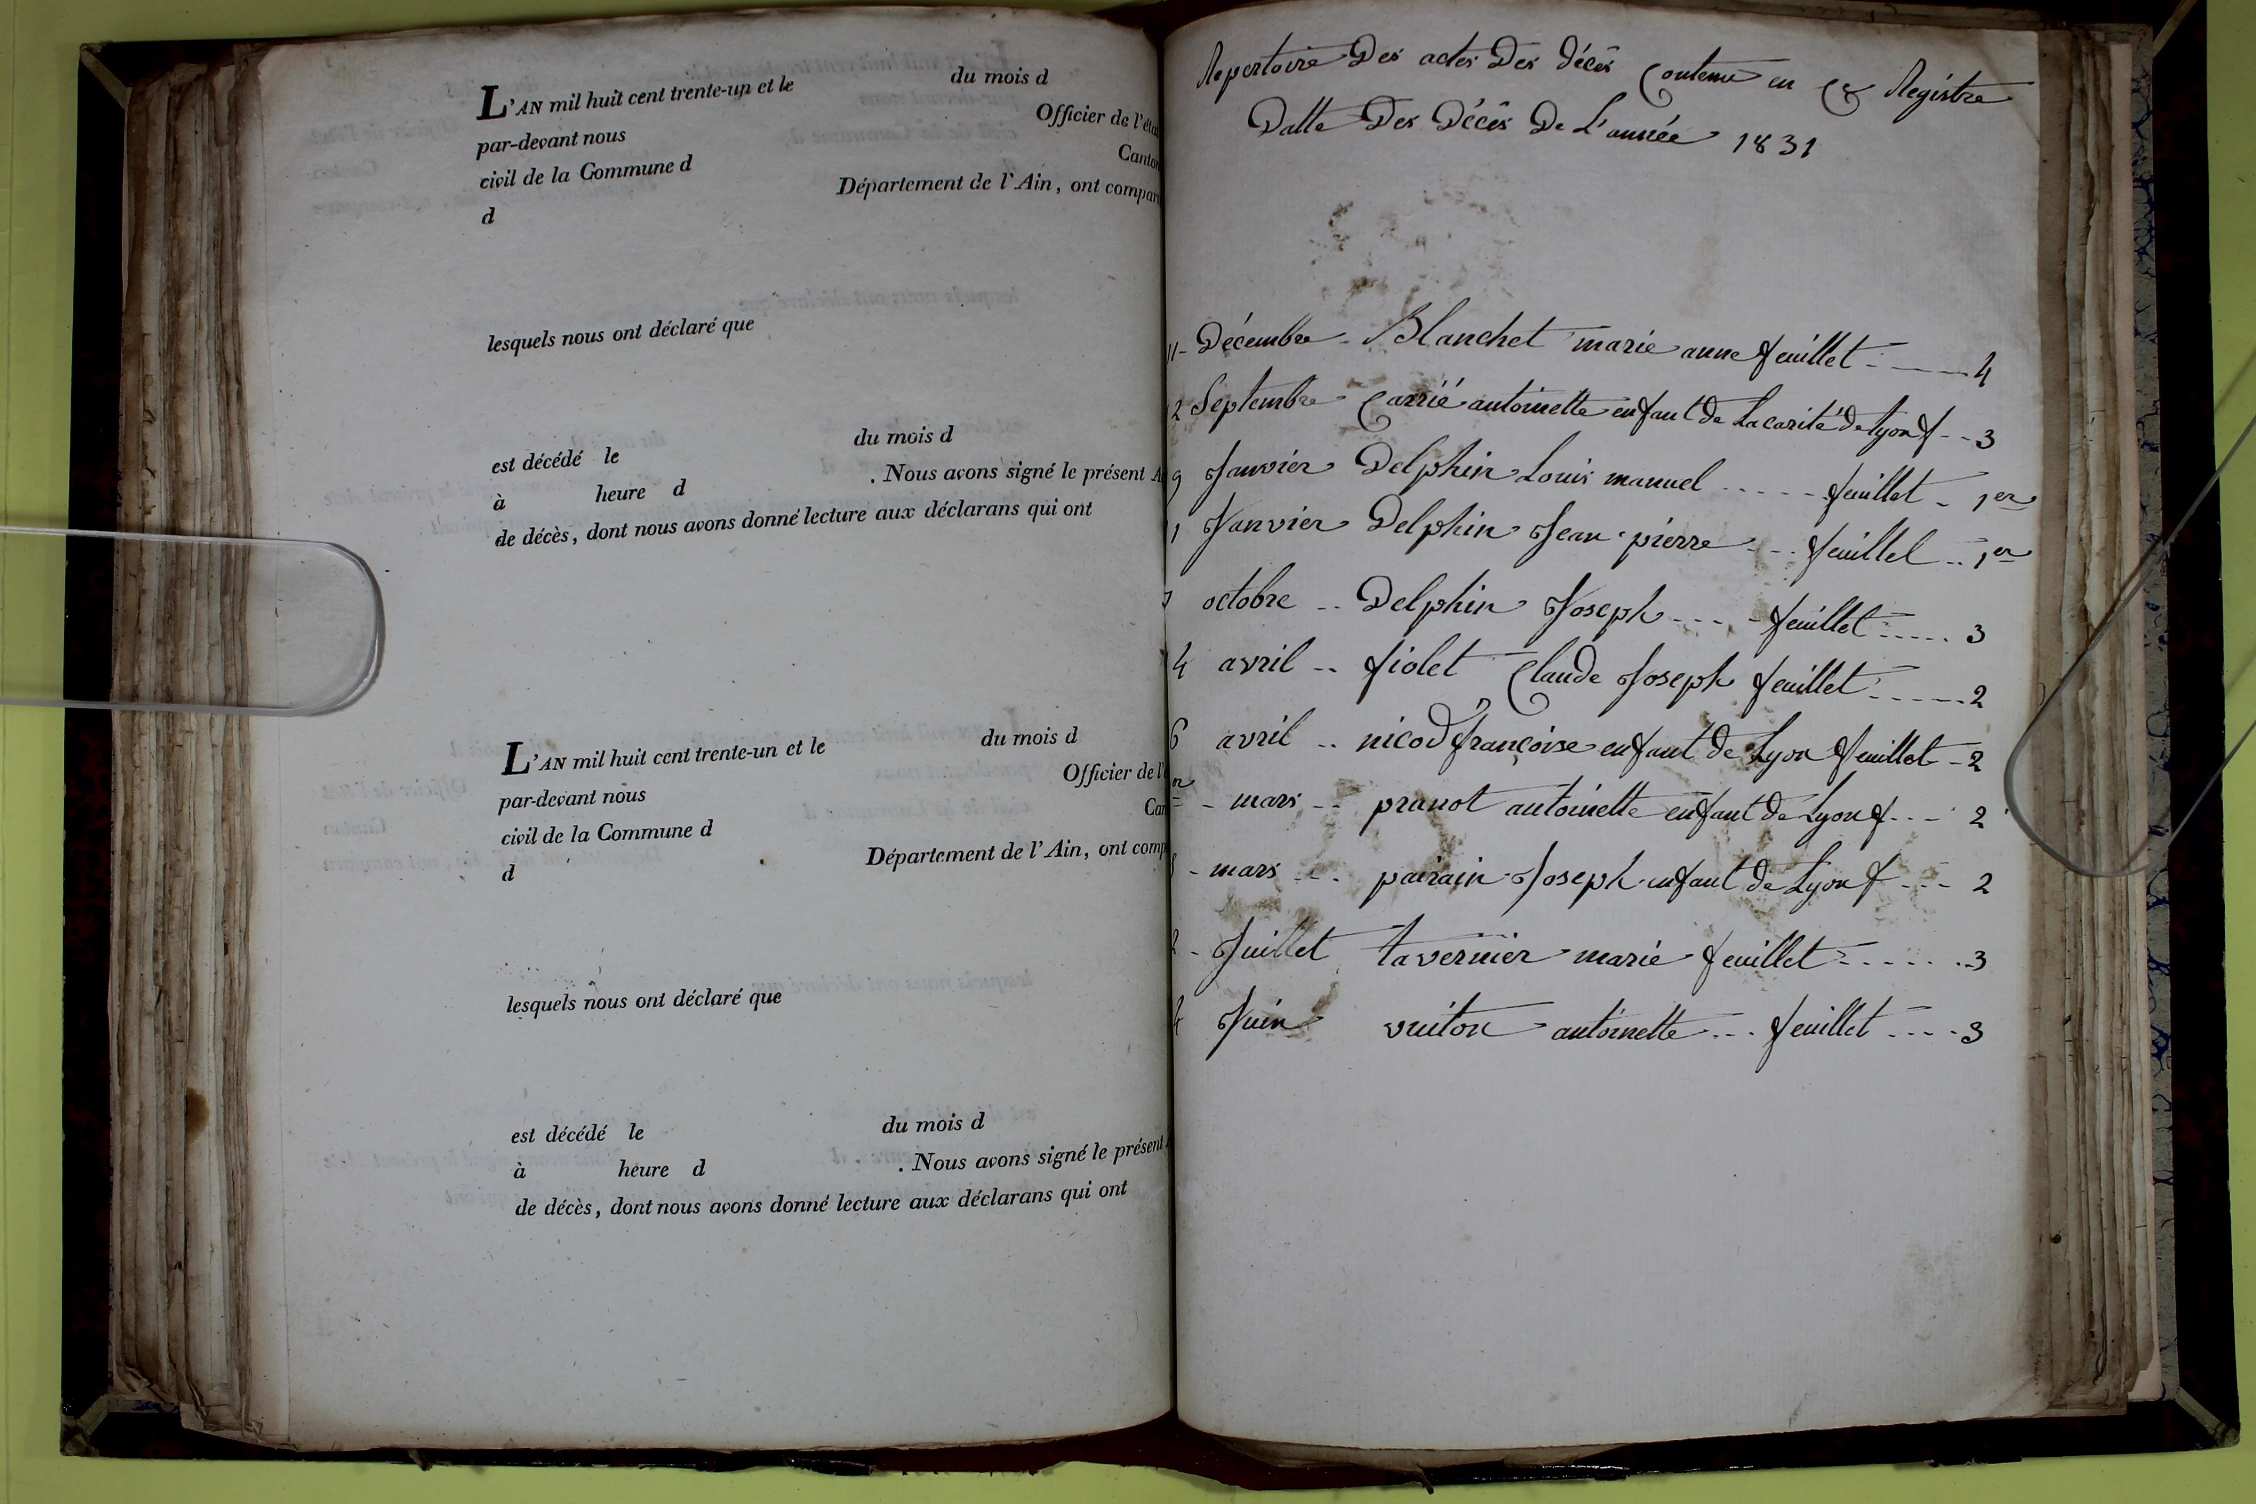 L'AN mil huit cent trente-un et le du mois d
par-devant nous Officier de l'état
civil de la Commune d Canton
d Département de l'Ain, ont compar
lesquels nous ont déclaré que
est décédé le du mois d
à heure d . Nous avons signé le présent A
de décès, dont nous avons donné lecture aux déclarans qui ont
L'AN mil huit cent trente-un et le du mois d
par-devant nous Officier de l'é
civil de la Commune d Can
d Département de l'Ain, ont comp
lesquels nous ont déclaré que
est décédé le du mois d
à heure d . Nous avons signé le présent
de décès, dont nous avons donné lecture aux déclarans qui ont
Repertoire Des actes Des décès Contenu en Ce Registre
Datte Des Décès De L'année 1831
11 - Décembre - Blanchet marie anne feuillet - 4
2 Septembre Carrié antoinette enfant de La carité de Lyon f - - 3
9 Janvier Delphin Louis manuel - - - - - feuillet - 1er
1 Janvier Delphin Jean pierre - - - feuillet - - 1er
7 octobre - - Delphin Joseph - - - - - feuillet - - - - - 3
4 avril - - fiolet Claude Joseph feuillet - - - - - 2
6 avril - - nicod françoise enfant de Lyon feuillet - 2
er - mars - - pranot antoinette enfant de Lyon f - - - 2
- mars - - - pairain Joseph enfant de Lyon f - - - 2
2 - Juillet tavernier marie feuillet - - - - - - 3
4 Juin vuiton antoinette - - - feuillet - - - - 3